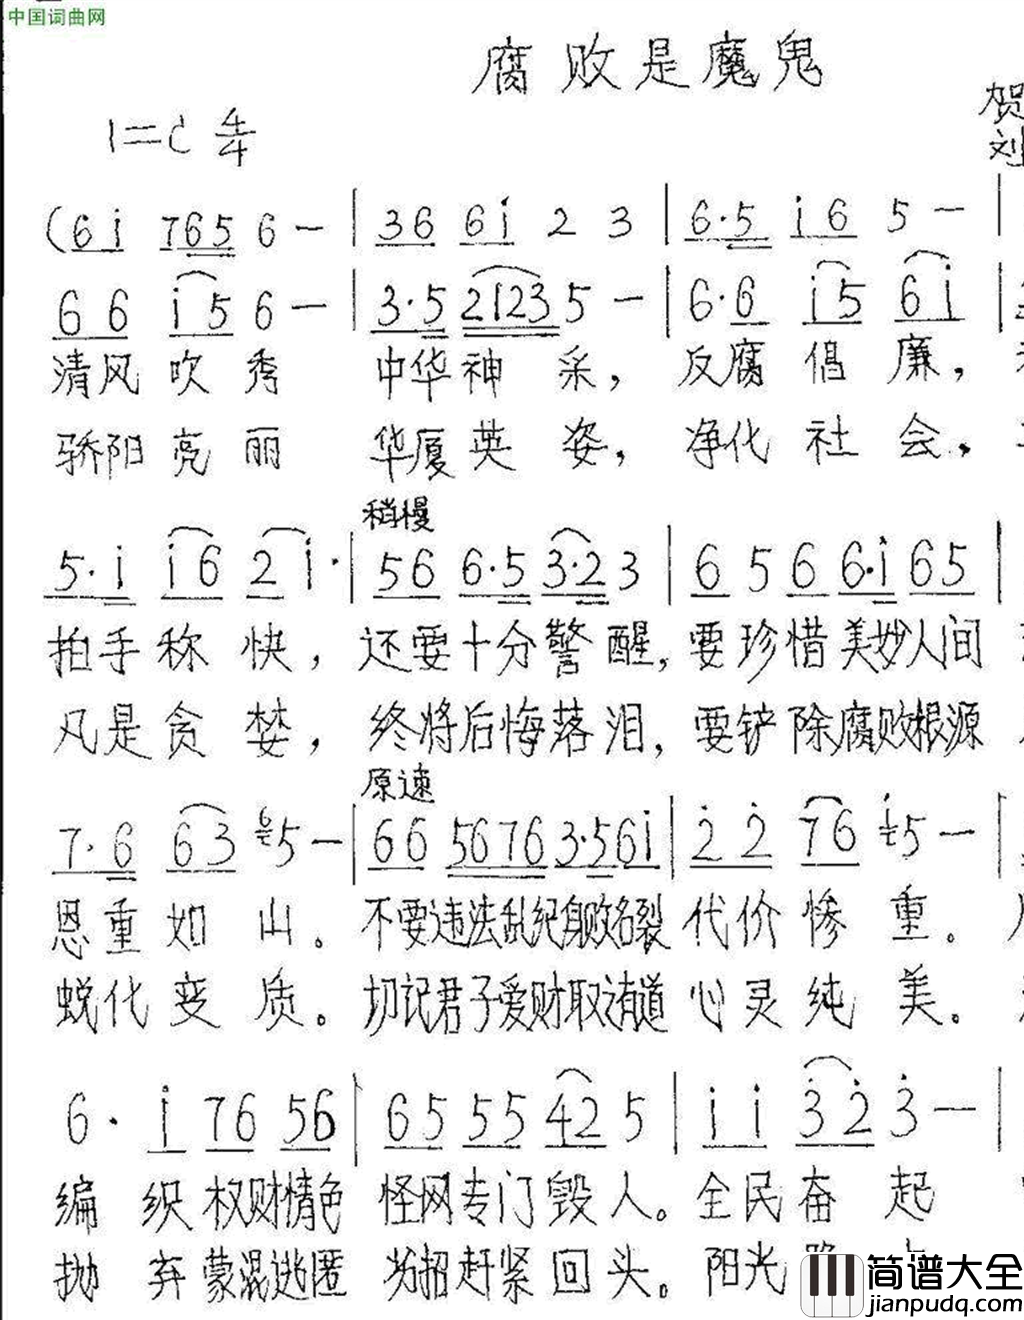 中国词曲网
腐败是魔鬼
贺
1=C 4/4
刘
(6i 765 6 — | 36 6i 2 3 | 6·5 i6 5 — |
66 i5 6 — | 3·5 2123 5 — | 6·6 i5 6i |
清风吹秀 中华神采，反腐倡廉，
骄阳亮丽 华厦英姿，净化社会，
稍慢
5·i i6 2i· | 56 6·5 3·2 3 | 6 5 6 6·i 65 |
拍手称快，还要十分警醒，要珍惜美妙人间
凡是贪婪，终将后悔落泪，要铲除腐败根源
原速
7·6 63 6 5 — | 66 5676 3·56i | 2̇ 2̇ 76 i5 — |
恩重如山。不要违法乱纪身败名裂 代价惨重。
蜕化变质。切记君子爱财取之有道 心灵纯美。
6· i 76 56 | 65 55 42 5 | i i 3̇2̇ 3̇ — |
编织权财情色 怪网专门毁人。全民奋起
抛弃蒙混逃匿 劝招赶紧回头。阳光
简谱大全
jianpudq.com